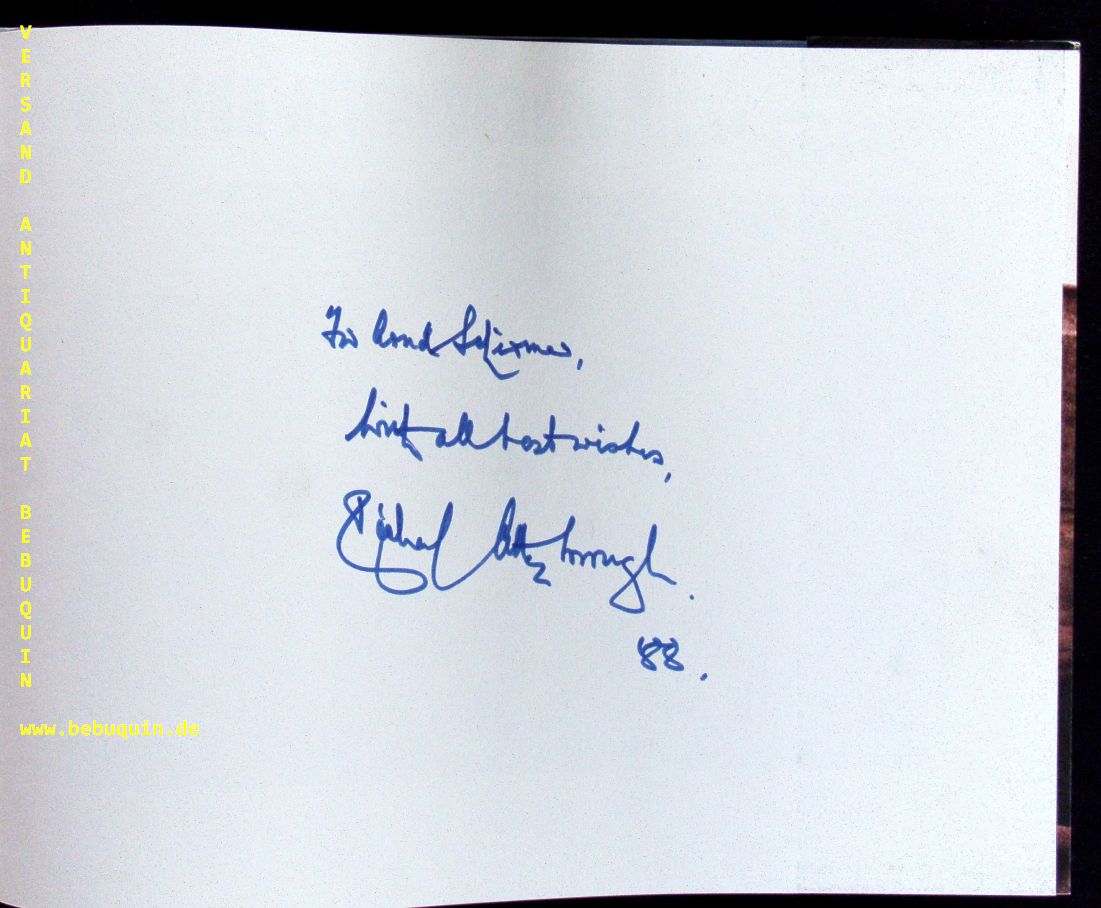 VERSAND ANTIQUARIAT BEBUQUIN
www.bebuquin.de
For Arnd Schirmer,
with all best wishes,
Richard Attenborough.
'88.